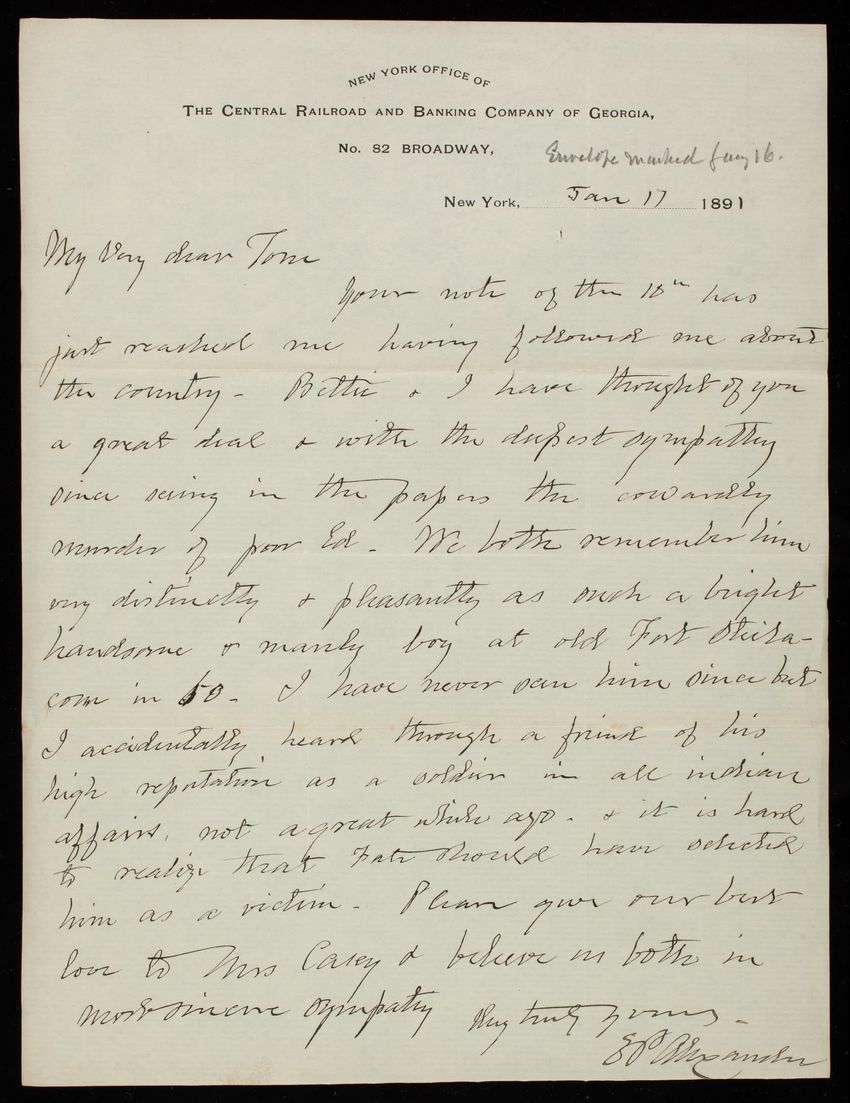 NEW YORK OFFICE OF
THE CENTRAL RAILROAD AND BANKING COMPANY OF GEORGIA,
No. 82 BROADWAY,
Envelope marked Jany 16.
New York, Jan 17 1891
My Very dear Tom
Your note of the 10th has
just reached me having followed me about
the country - Bettie & I have thought of you
a great deal & with the deepest sympathy
since seeing in the papers the cowardly
murder of poor Ed - We both remember him
very distinctly & pleasantly as such a bright
handsome & manly boy at old Fort Steila-
coom in 60 - I have never seen him since but
I accidentally heard through a friend of his
high reputation as a soldier in all indian
affairs, not a great while ago - & it is hard
to realize that Fate should have selected
him as a victim - Please give our best
love to Mrs Casey & believe us both in
most sincere sympathy Very truly yours -
EPAlexander